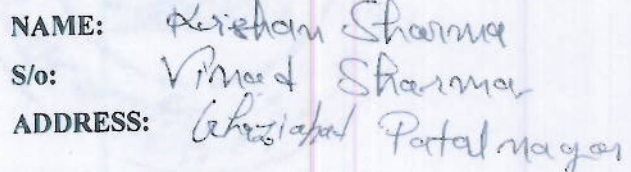 NAME: Krishan Sharma
S/o: Vinod Sharma
ADDRESS: Ghaziabad Patal nagar